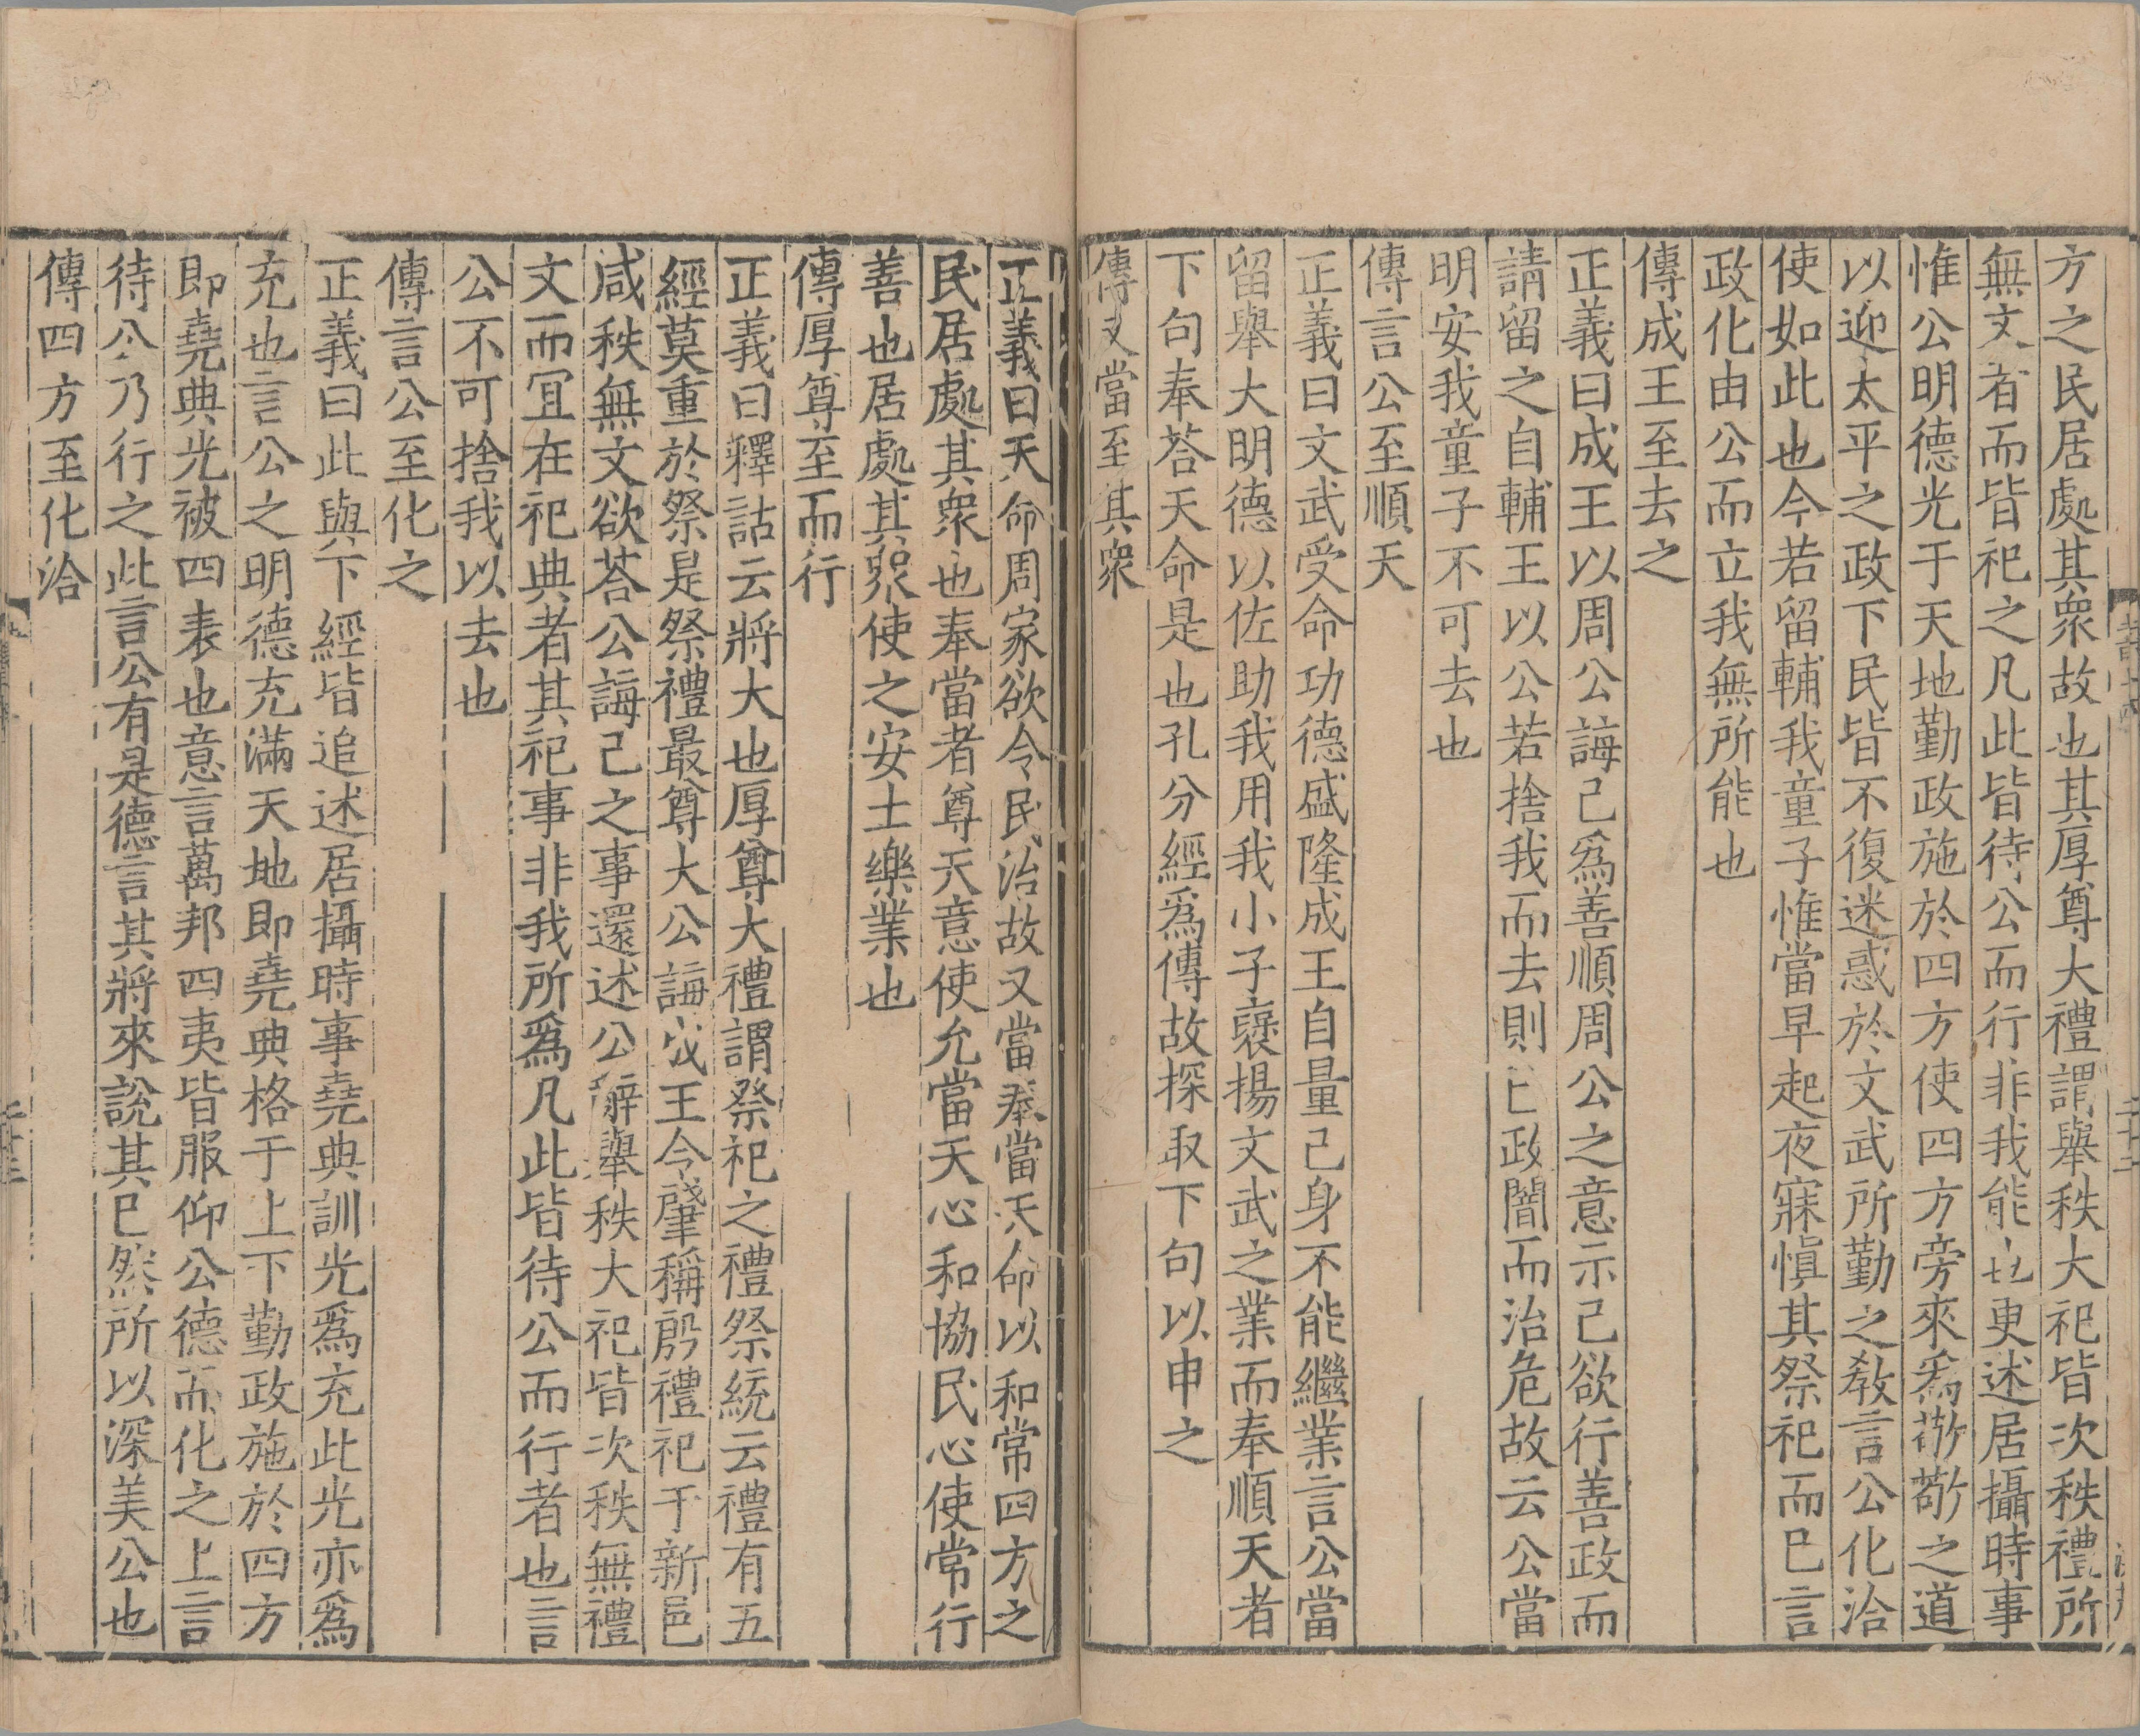 方之民居處其衆故也其厚尊大禮謂舉秩大祀皆次秩禮所
無文者而皆祀之凡此皆待公而行非我能也更述居攝時事
惟公明德光于天地勤政施於四方使四方旁來爲敬敬之道
以迎太平之政下民皆不復迷惑於文武所勤之教言公化洽
使如此也今若留輔我童子惟當早起夜寐愼其祭祀而已言
政化由公而立我無所能也
傳成王至去之
正義曰成王以周公誨己爲善順周公之意示己欲行善政而
請留之自輔王以公若捨我而去則已政闇而治危故云公當
明安我童子不可去也
傳言公至順天
正義曰文武受命功德盛隆成王自量己身不能繼業言公當
留舉大明德以佐助我用我小子襃揚文武之業而奉順天者
下句奉荅天命是也孔分經爲傳故探取下句以申之
傳又當至其衆
正義曰天命周家欲令民治故又當奉當天命以和常四方之
民居處其衆也奉當者尊天意使允當天心和協民心使常行
善也居處其衆使之安土樂業也
傳厚尊至而行
正義曰釋詁云將大也厚尊大禮謂祭祀之禮祭統云禮有五
經莫重於祭是祭禮最尊大公誨成王令肇稱殷禮祀于新邑
咸秩無文欲荅公誨己之事還述公辭舉秩大祀皆次秩無禮
文而冝在祀典者其祀事非我所爲凡此皆待公而行者也言
公不可捨我以去也
傳言公至化之
正義曰此與下經皆追述居攝時事堯典訓光爲充此光亦爲
充也言公之明德充滿天地即堯典格于上下勤政施於四方
即堯典光被四表也意言萬邦四夷皆服仰公德而化之上言
待公乃行之此言公有是德言其將來說其已然所以深美公也
傳四方至化洽